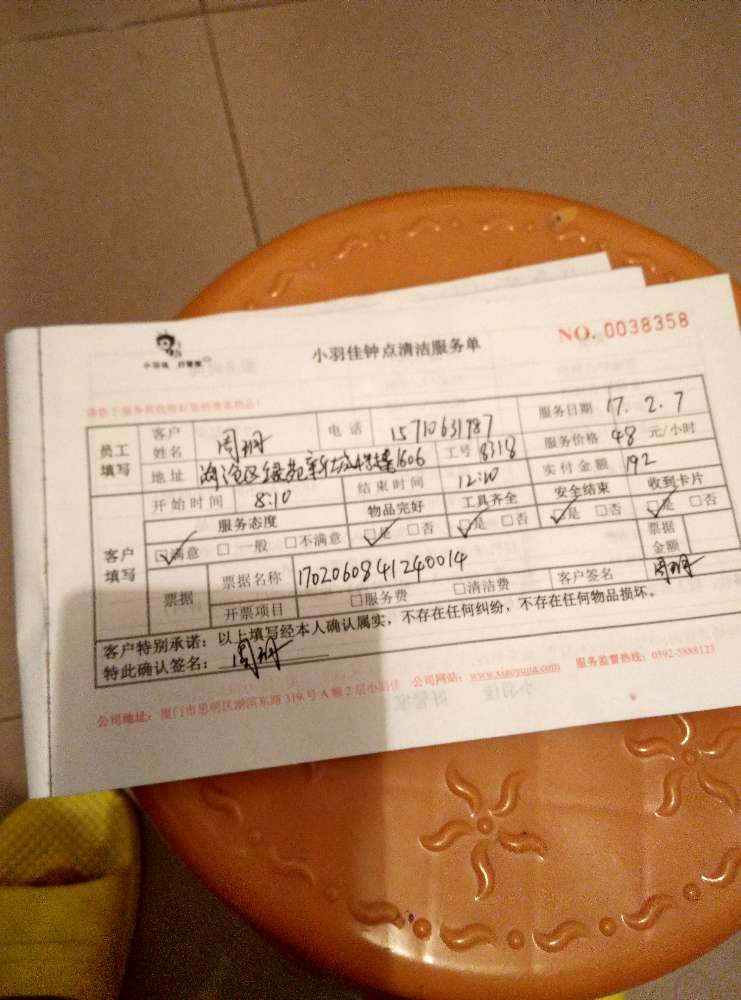 小羽佳 好管家
小羽佳钟点清洁服务单
NO. 0038358
请您于服务前收检好您的贵重物品!
员工填写 客户姓名 周珊 电话 15710631787 服务日期 17.2.7
地址 海沧区绿苑 1606 工号 8318 服务价格 48 元/小时
开始时间 8:10 结束时间 12:10 实付金额 192
客户填写 服务态度 物品完好 工具齐全 安全结束 收到卡片
☑满意 □一般 □不满意 ☑是 □否 ☑是 □否 ☑是 □否 ☑是 □否
票据 票据名称 1702060841240014 票据金额
开票项目 □服务费 □清洁费 客户签名 周珊
客户特别承诺:以上填写经本人确认属实,不存在任何纠纷,不存在任何物品损坏。
特此确认签名: 周珊
公司地址:厦门市思明区湖滨东路319号A幢2层小羽佳 公司网站:www.xiaoyujia.com 服务监督热线:0592-5888123